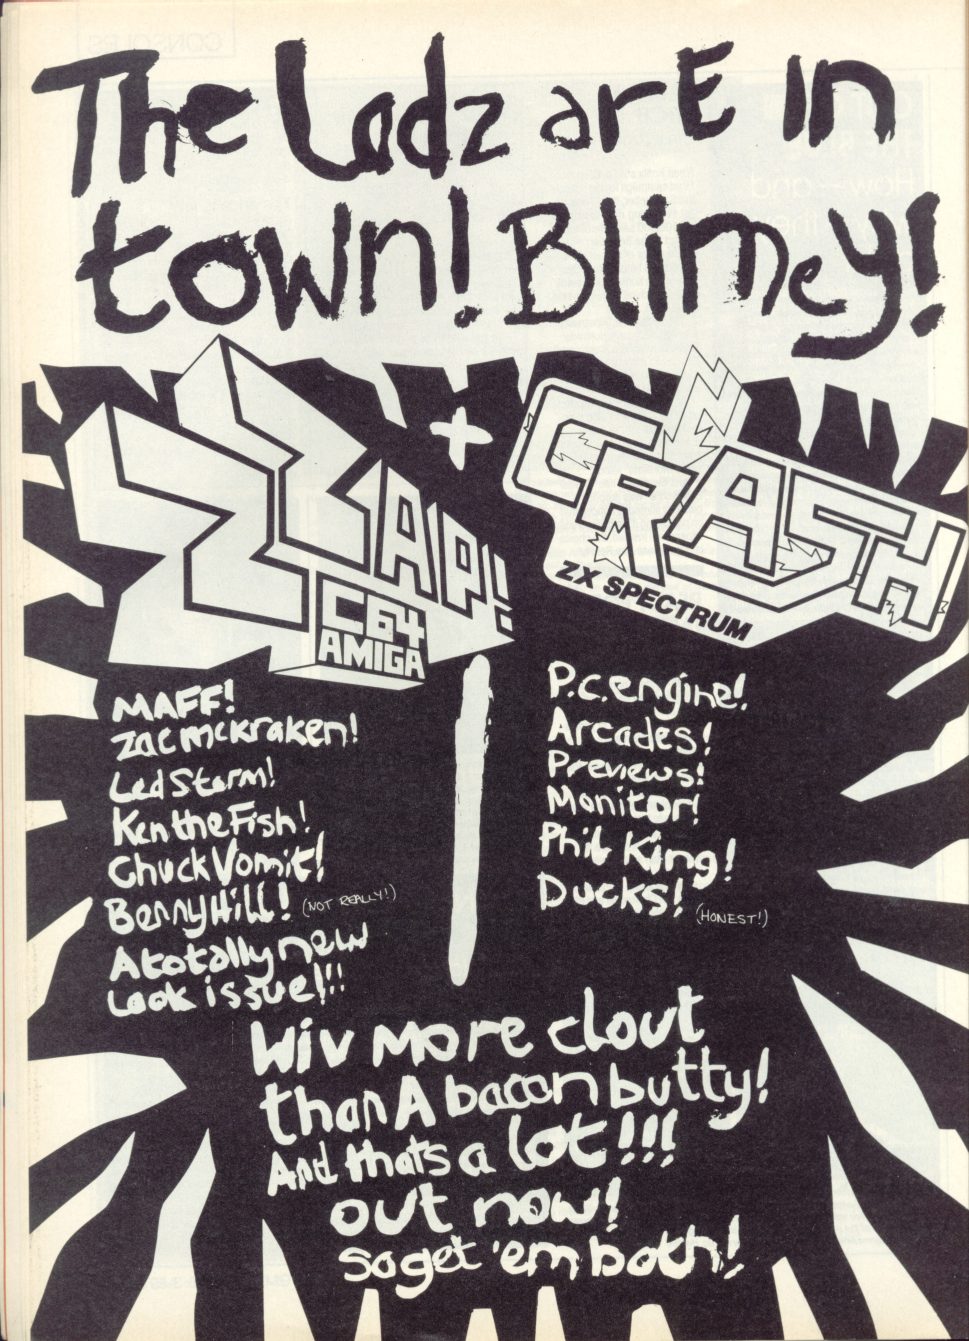 The Ladz arE In
town! Blimey!
ZZAP!
C64
AMIGA
+
CRASH
ZX SPECTRUM
MAFF!
Zac mckraken!
Led Storm!
Ken the Fish!
Chuck Vomit!
Benny Hill! (NOT REALLY!)
A totally new
look issue!!!
P.c.engine!
Arcades!
Previews!
Monitor!
Phil King!
Ducks! (HONEST!)
Wiv More clout
than A bacon butty!
And thats a lot!!!
out now!
So get 'em both!